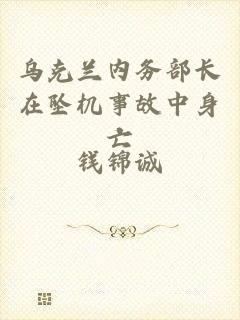 乌克兰内务部长
在坠机事故中身
亡
钱锦诚